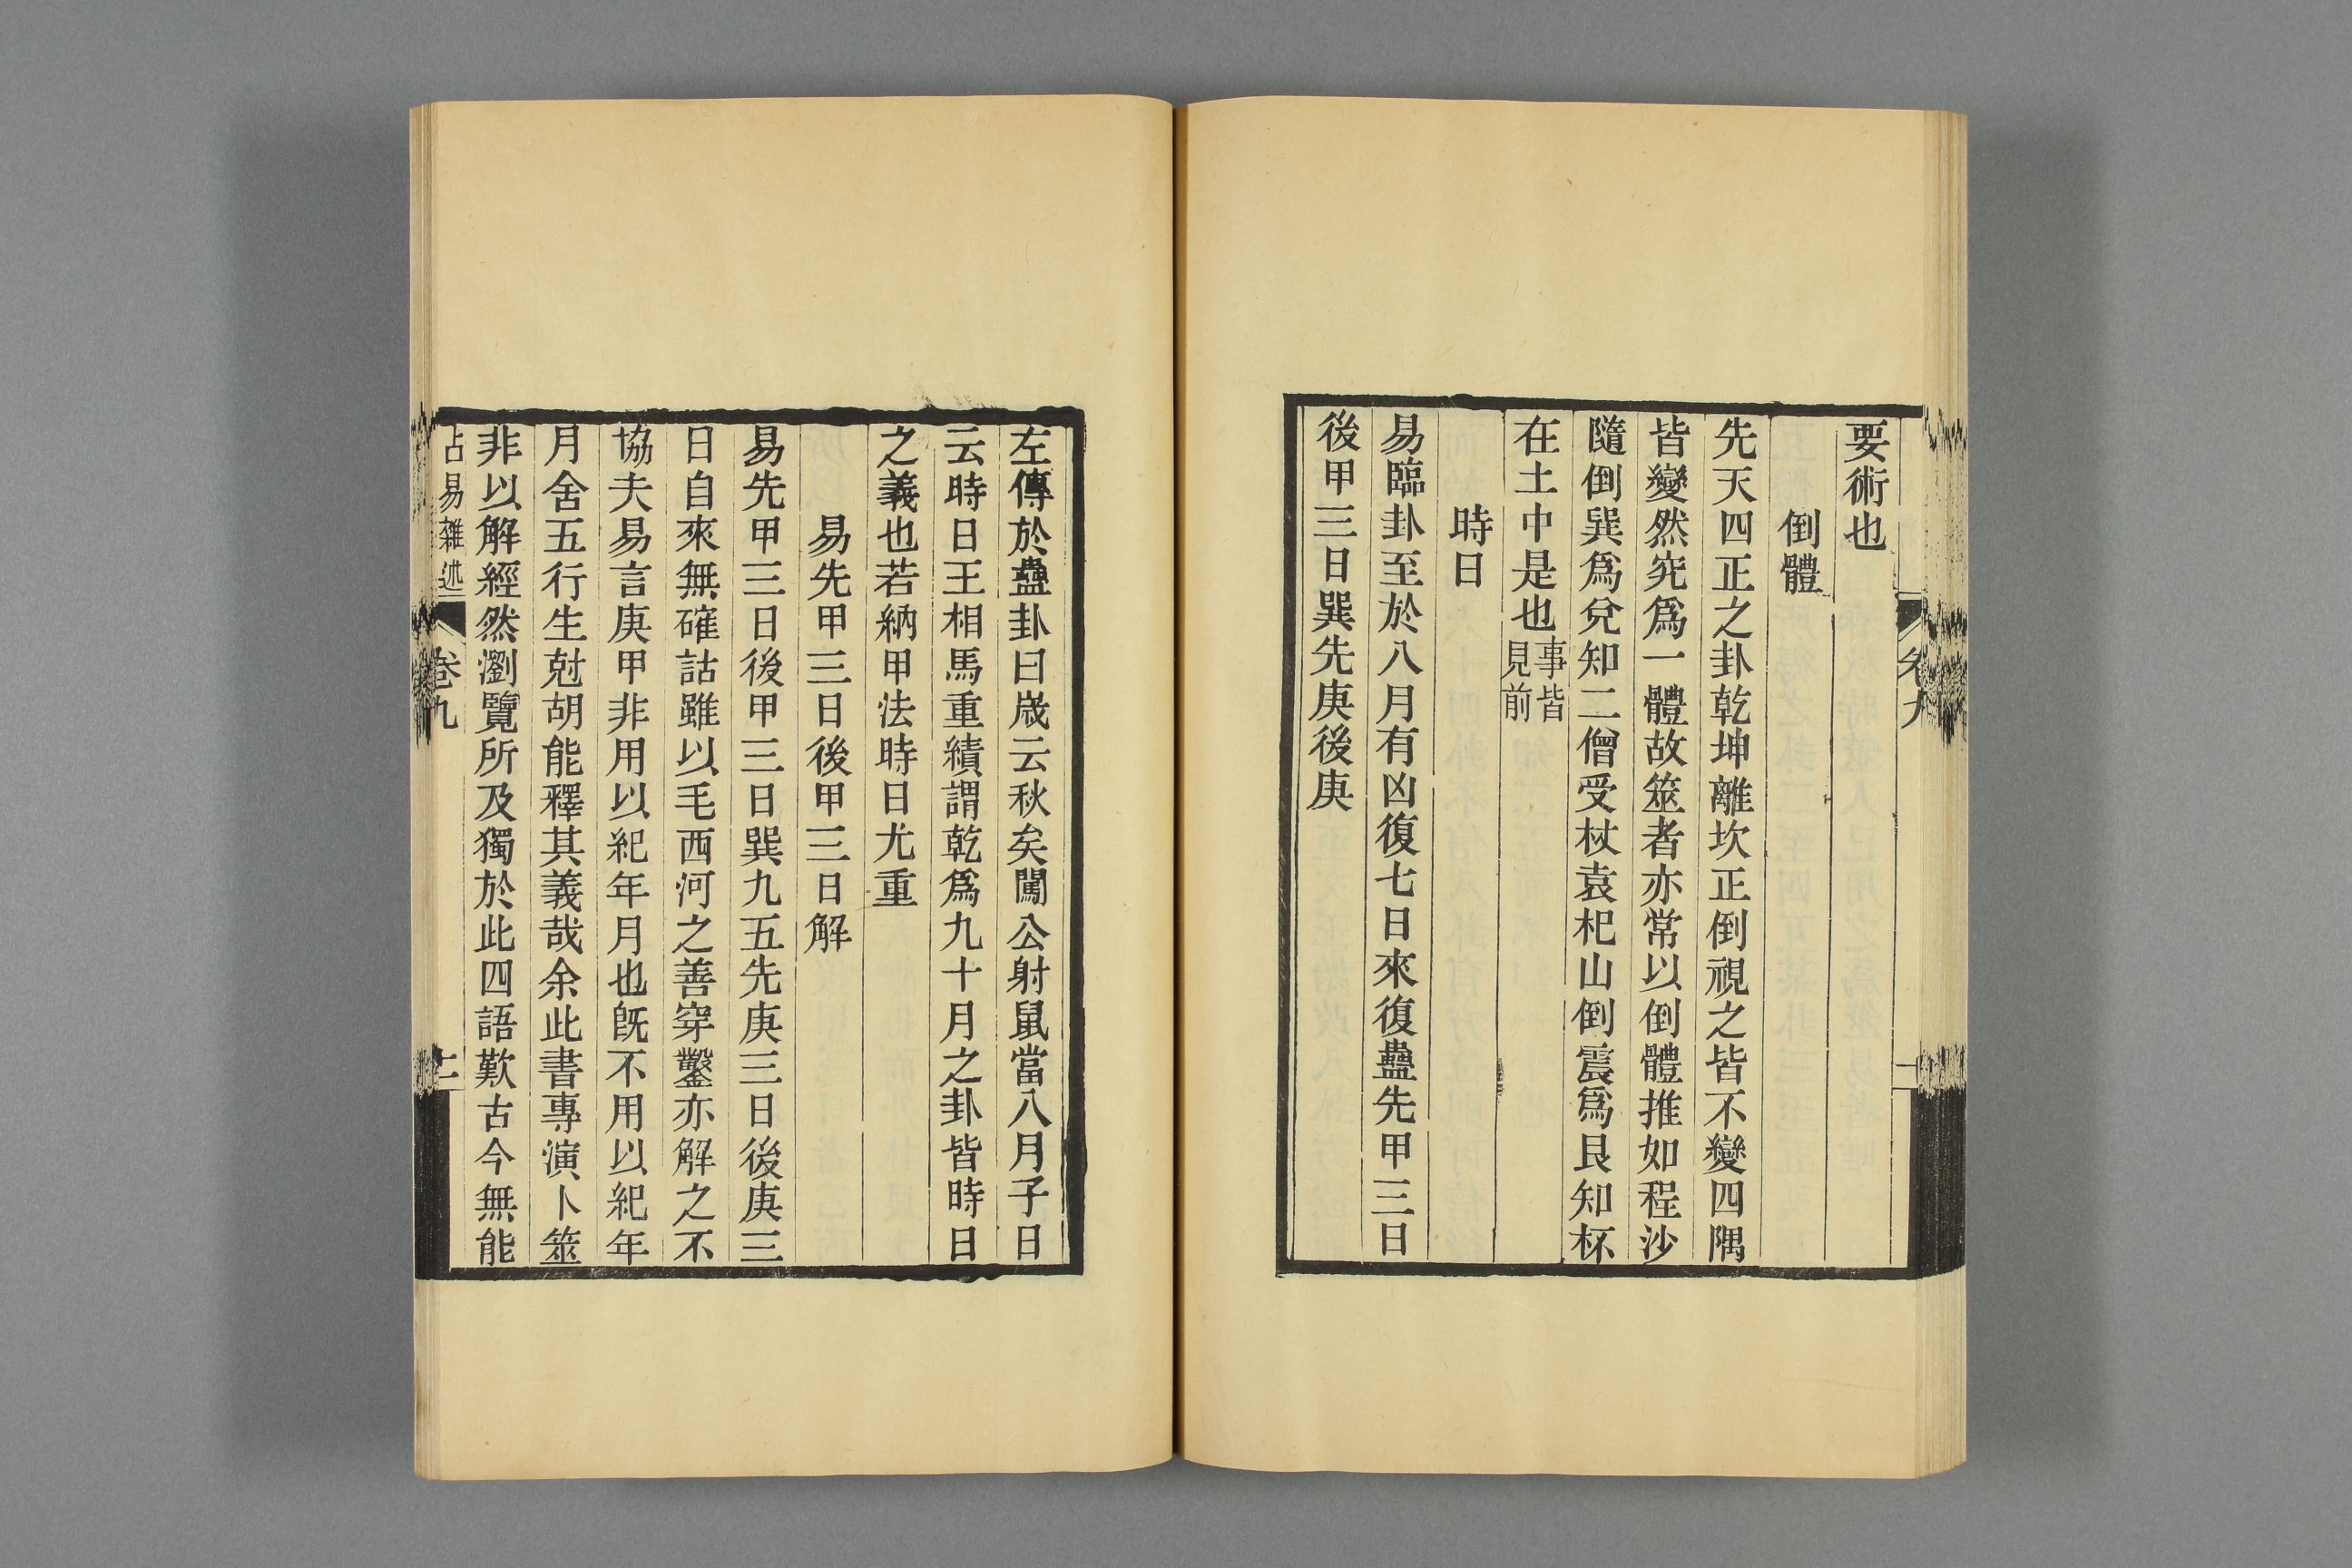 要術也
倒體
先天四正之卦乾坤離坎正倒視之皆不變四隅
皆變然究爲一體故筮者亦常以倒體推如程沙
隨倒巽爲兌知二僧受杖袁杞山倒震爲艮知杯
在土中是也事皆
見前
時日
易臨卦至於八月有凶復七日來復蠱先甲三日
後甲三日巽先庚後庚
左傳於蠱卦曰歲云秋矣闖公射鼠當八月子日
云時日王相馬重績謂乾爲九十月之卦皆時日
之義也若納甲法時日尤重
易先甲三日後甲三日解
易先甲三日後甲三日巽九五先庚三日後庚三
日自來無確詁雖以毛西河之善穿鑿亦解之不
協夫易言庚甲非用以紀年月也旣不用以紀年
月舍五行生尅胡能釋其義哉余此書專演卜筮
非以解經然瀏覽所及獨於此四語歎古今無能
占易雜述
卷九